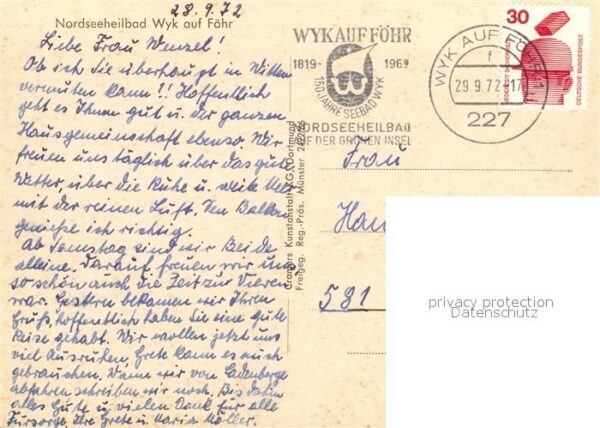 28.9.72
Nordseeheilbad Wyk auf Föhr
Liebe Frau Wenzel!
Ob ich Sie überhaupt in Witten
vermuten kann?! Hoffentlich
geht es Ihnen gut u. der ganzen
Hausgemeinschaft ebenso. Wir
freuen uns täglich über das gute
Wetter, über die Ruhe u. weite Meer
mit der reinen Luft. Den Balkon
genieße ich richtig.
Ab Samstag sind wir Beide
alleine. Darauf freuen wir uns
so schön auch die Zeit zur Vieren
war. Gestern bekamen wir Ihren
Gruß, hoffentlich haben Sie eine gute
Reise gehabt. Wir wollen jetzt uns
viel Ausruhen, Grete kann es auch
gebrauchen. Wann wir von
abfahren schreiben wir noch. Bis dahin
alles Gute u. vielen Dank für alle
Fürsorge, Ihre Grete u. Maria Möller.
Cramers Kunstanstalt KG, Dortmund
Freigeg. Reg.-Präs. Münster
WYK AUF FÖHR
1819- -1969
150 JAHRE SEEBAD WYK
NORDSEEHEILBAD
AUF DER GRÜNEN INSEL
WYK AUF FÖHR 1
f
29.9.72-17
227
30
JEDERZEIT SICHERHEIT
DEUTSCHE BUNDESPOST
Frau
581
privacy protection
Datenschutz